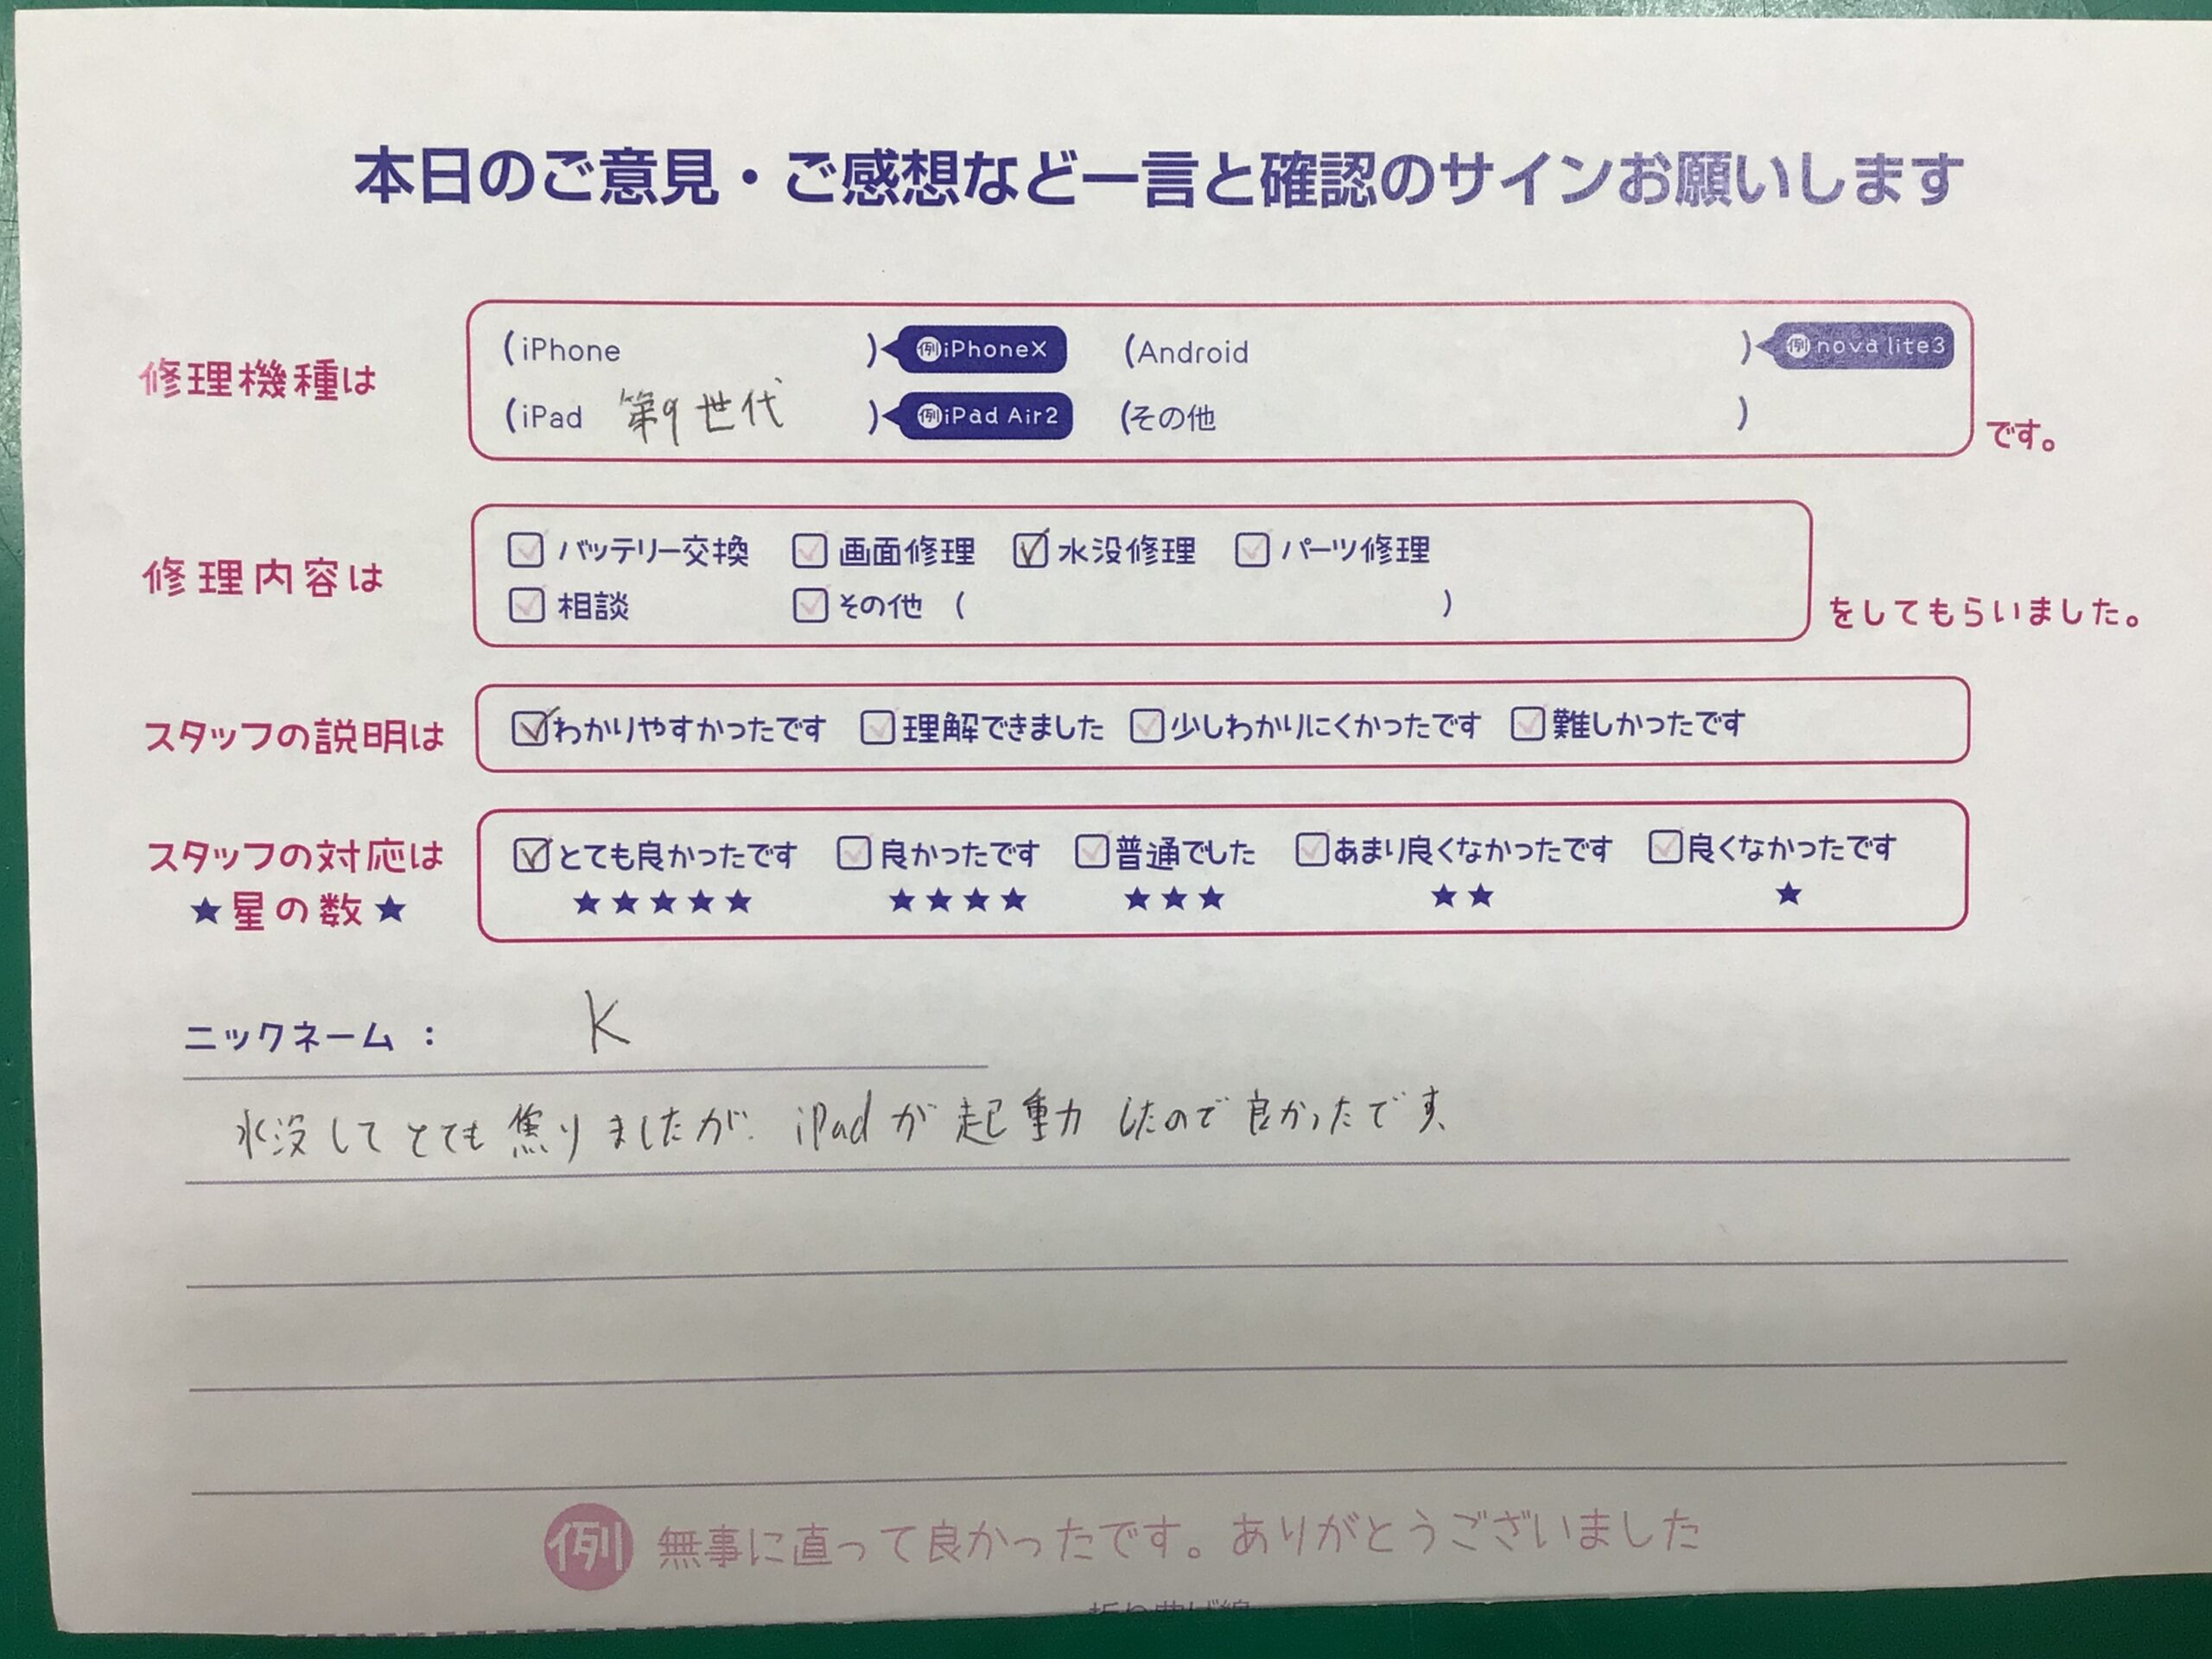 本日のご意見・ご感想など一言と確認のサインお願いします
修理機種は
(iPhone ) 例iPhoneX (Android ) 例nova lite3
(iPad 第9世代 ) 例iPad Air2 (その他 )
です。
修理内容は
バッテリー交換 画面修理 水没修理 パーツ修理
相談 その他 ( )
をしてもらいました。
スタッフの説明は
わかりやすかったです 理解できました 少しわかりにくかったです 難しかったです
スタッフの対応は
★星の数★
とても良かったです 良かったです 普通でした あまり良くなかったです 良くなかったです
★★★★★ ★★★★ ★★★ ★★ ★
ニックネーム : K
水没してとても焦りましたが、iPadが起動したので良かったです。
例 無事に直って良かったです。ありがとうございました
折り曲げ線